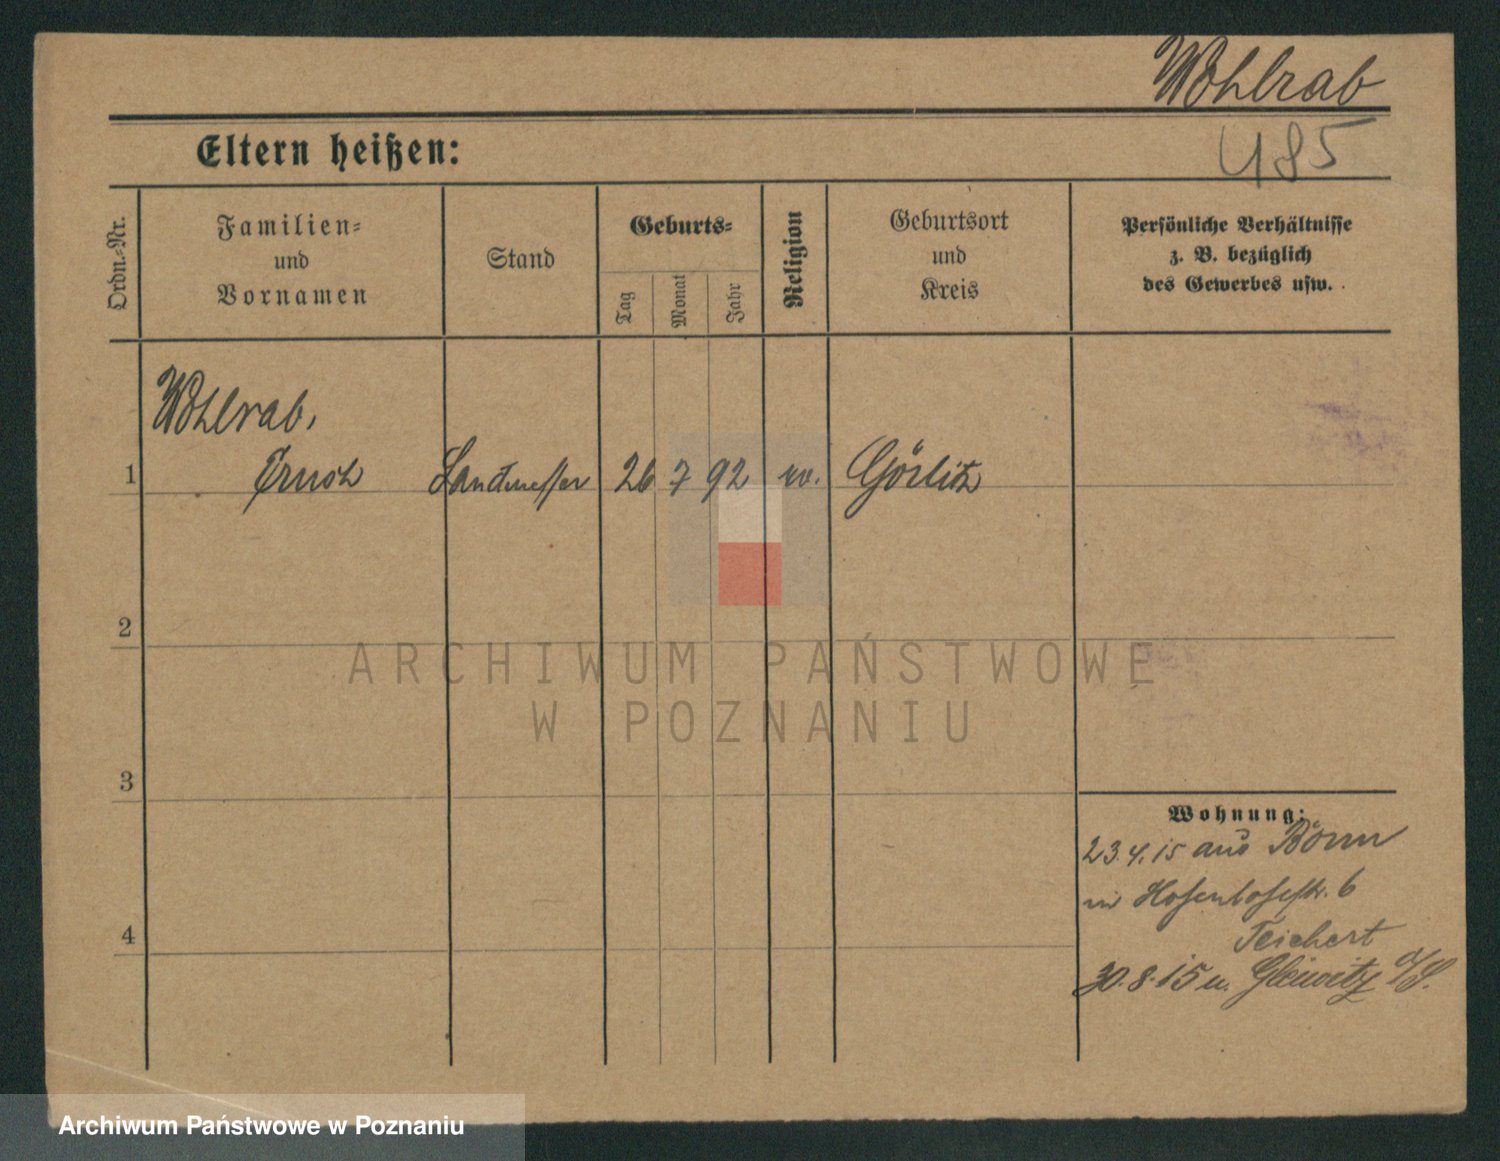 Wohlrab
485
Eltern heißen:
Ordn.-Nr.
Familien-
und
Vornamen
Stand
Geburts-
Tag
Monat
Jahr
Religion
Geburtsort
und
Kreis
Persönliche Verhältnisse
z. B. bezüglich
des Gewerbes usw.
Wohlrab,
1 Ernst Landmesser 26 7 92 ev. Görlitz
2
3
4
Wohnung:
23.4.15 aus Bonn
in 6
Teichert
30.8.15 n. Gleiwitz O/S.
ARCHIWUM PAŃSTWOWE
W POZNANIU
Archiwum Państwowe w Poznaniu